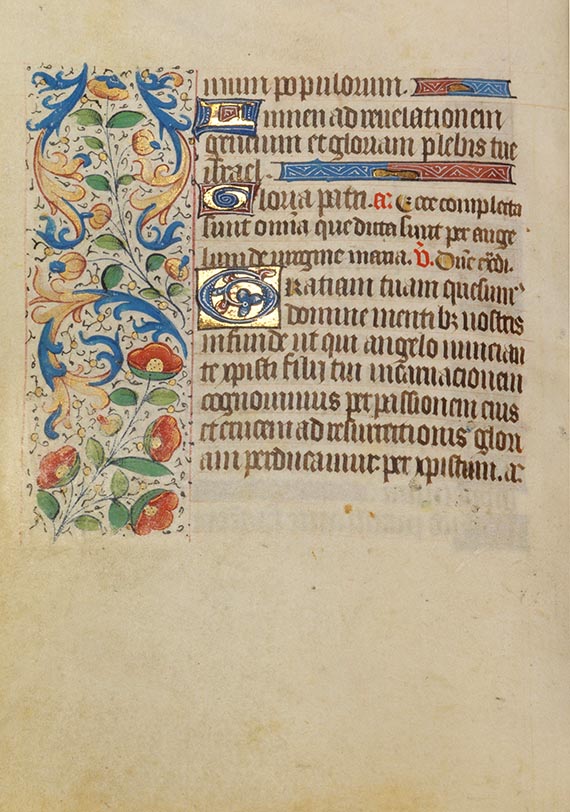 nium populorum.
Lumen ad reuelationem
gencium et gloriam plebis tue
israel.
Gloria patri. a. Ecce completa
sunt omnia que dicta sunt per ange
lum de virgine maria. v. Dne exdi.
Gratiam tuam quesum
domine mentibz nostris
infunde ut qui angelo nuncian
te xpisti filij tui incarnacionem
cognouimus per passionem eius
et crucem ad resurrectionis glori
am perducamur. per xpistum. a.